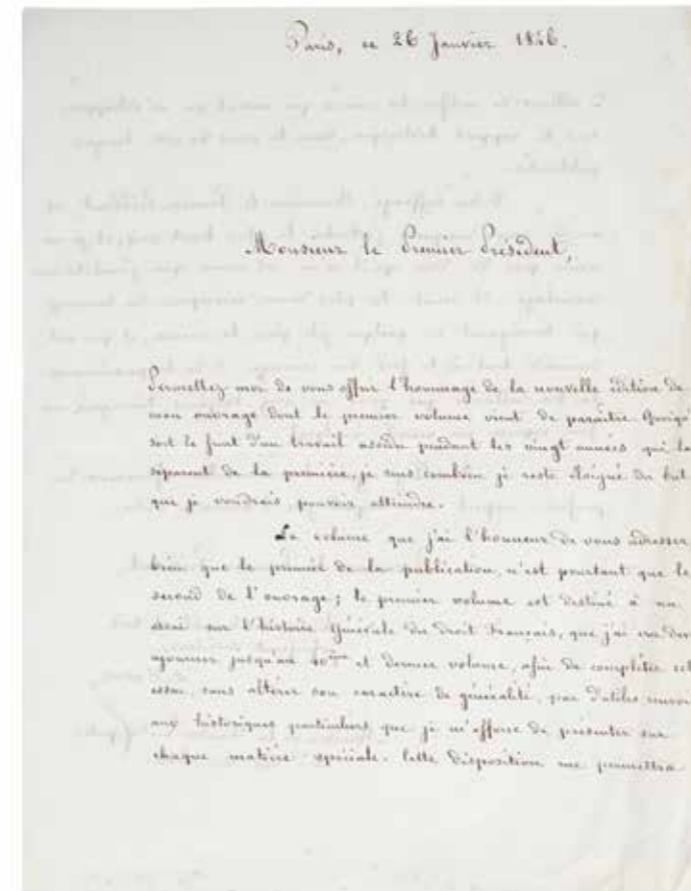 Paris, ce 26 Janvier 1846.
Monsieur le Premier Président,
Permettez moi de vous offrir l'hommage de la nouvelle édition de
mon ouvrage dont le premier volume vient de paraître. Quoiqu'
soit le fruit d'un travail assidu pendant les vingt années qui la
séparent de la première, je sens combien je reste éloigné du but
que je voudrais pouvoir atteindre.
Le volume que j'ai l'honneur de vous adresser
bien que le premier de la publication, n'est pourtant que le
second de l'ouvrage; le premier volume est destiné à un
essai sur l'histoire générale du droit Français, que j'ai cru de
ajourner jusqu'au 10ème et dernier volume, afin de compléter cet
essai, sans altérer son caractère de généralité, par d'utiles
aux historiques particuliers que je m'efforce de présenter sur
chaque matière spéciale. Cette disposition me permettra